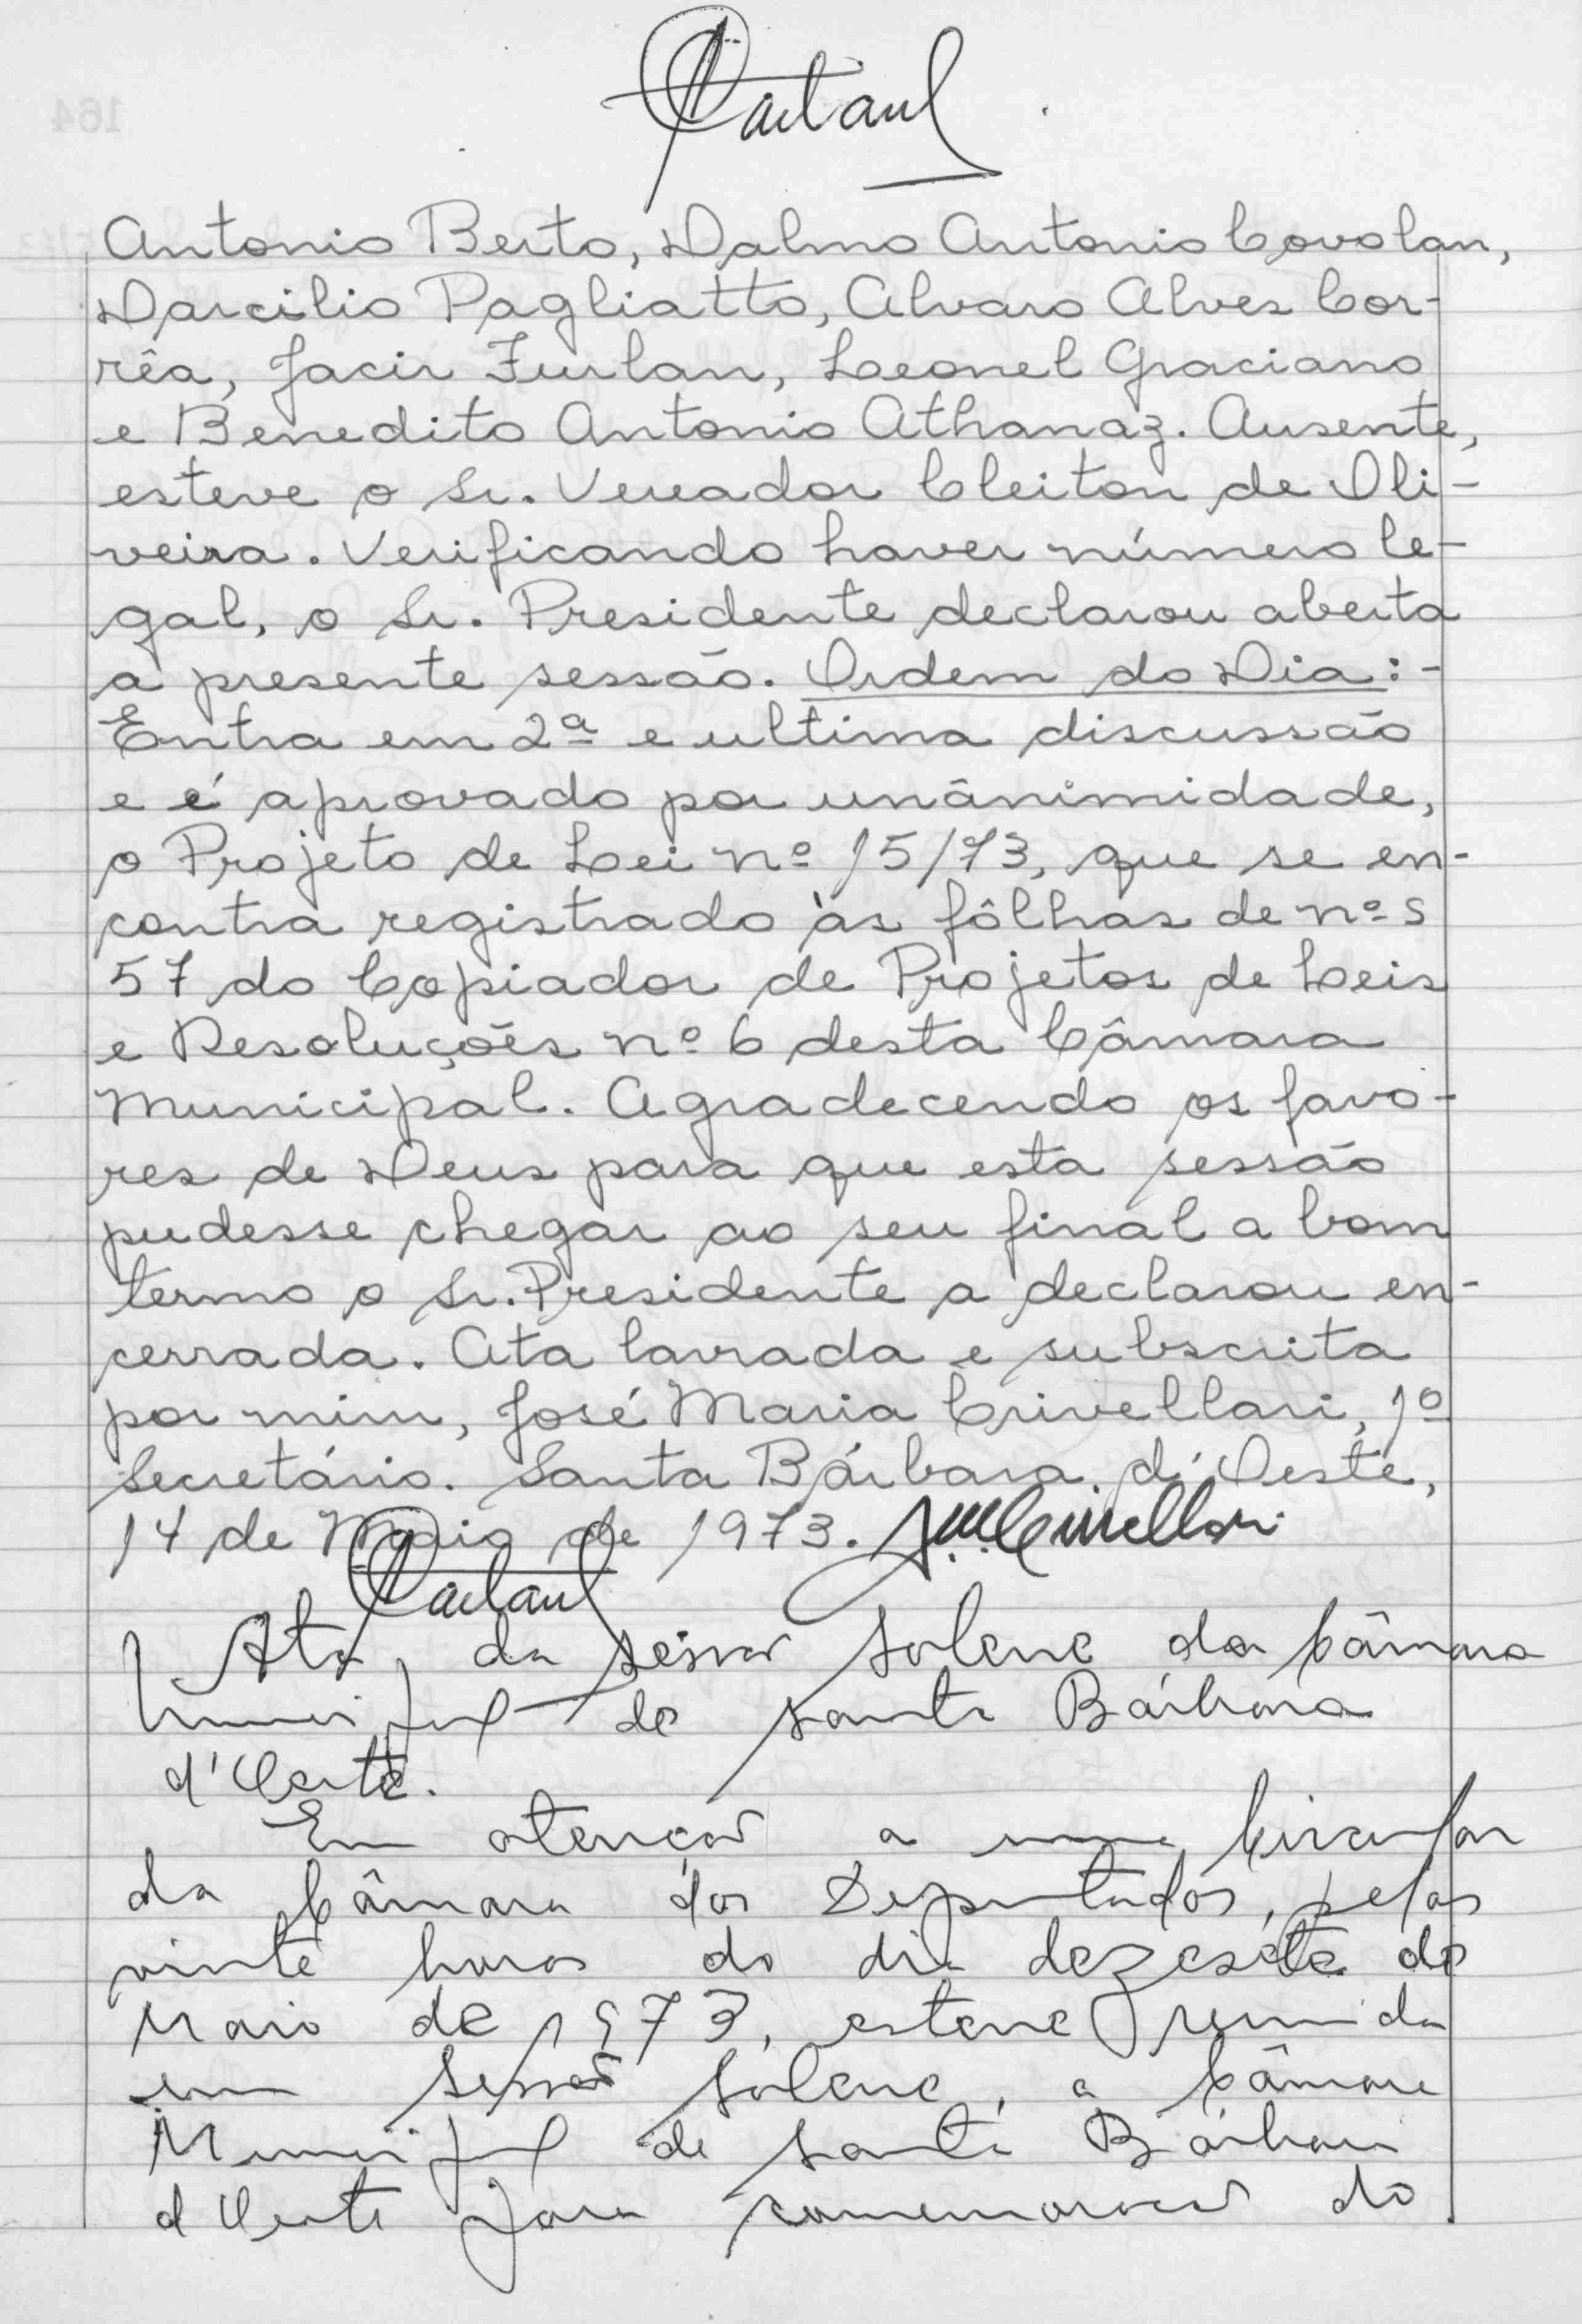 Antonio Berto, Dalmo Antonio Covolan,
Darcilio Pagliatto, Alvaro Alves Cor-
rêa, Jacir Furlan, Leonel Graciano
e Benedito Antonio Athanaz. Ausente,
esteve o Sr. Vereador Cleiton de Oli-
veira. Verificando haver número le-
gal, o Sr. Presidente declarou aberta
a presente sessão. Ordem do Dia:-
Entra em 2ª e ultima discussão
e é aprovado por unânimidade,
o Projeto de Lei nº 15/73, que se en-
contra registrado às fôlhas de nºs
57 do Copiador de Projetos de Leis
e Resoluções nº 6 desta Câmara
Municipal. Agradecendo os favo-
res de Deus para que esta sessão
pudesse chegar ao seu final a bom
termo o Sr. Presidente a declarou en-
cerrada. Ata lavrada e subscrita
por mim, José Maria Crivellari, 1º
Secretário. Santa Bárbara d'Oeste,
14 de Maio de 1973. J.M.Crivellari
Ata da sessão solene da Câmara
Municipal de Santa Bárbara
d'Oeste.
Em atenção a uma Circular
da Câmara dos Deputados, pelas
vinte horas do dia dezesete de
Maio de 1973, esteve reunida
em sessão solene, a Câmara
Municipal de Santa Bárbara
d'Oeste para comemoração do